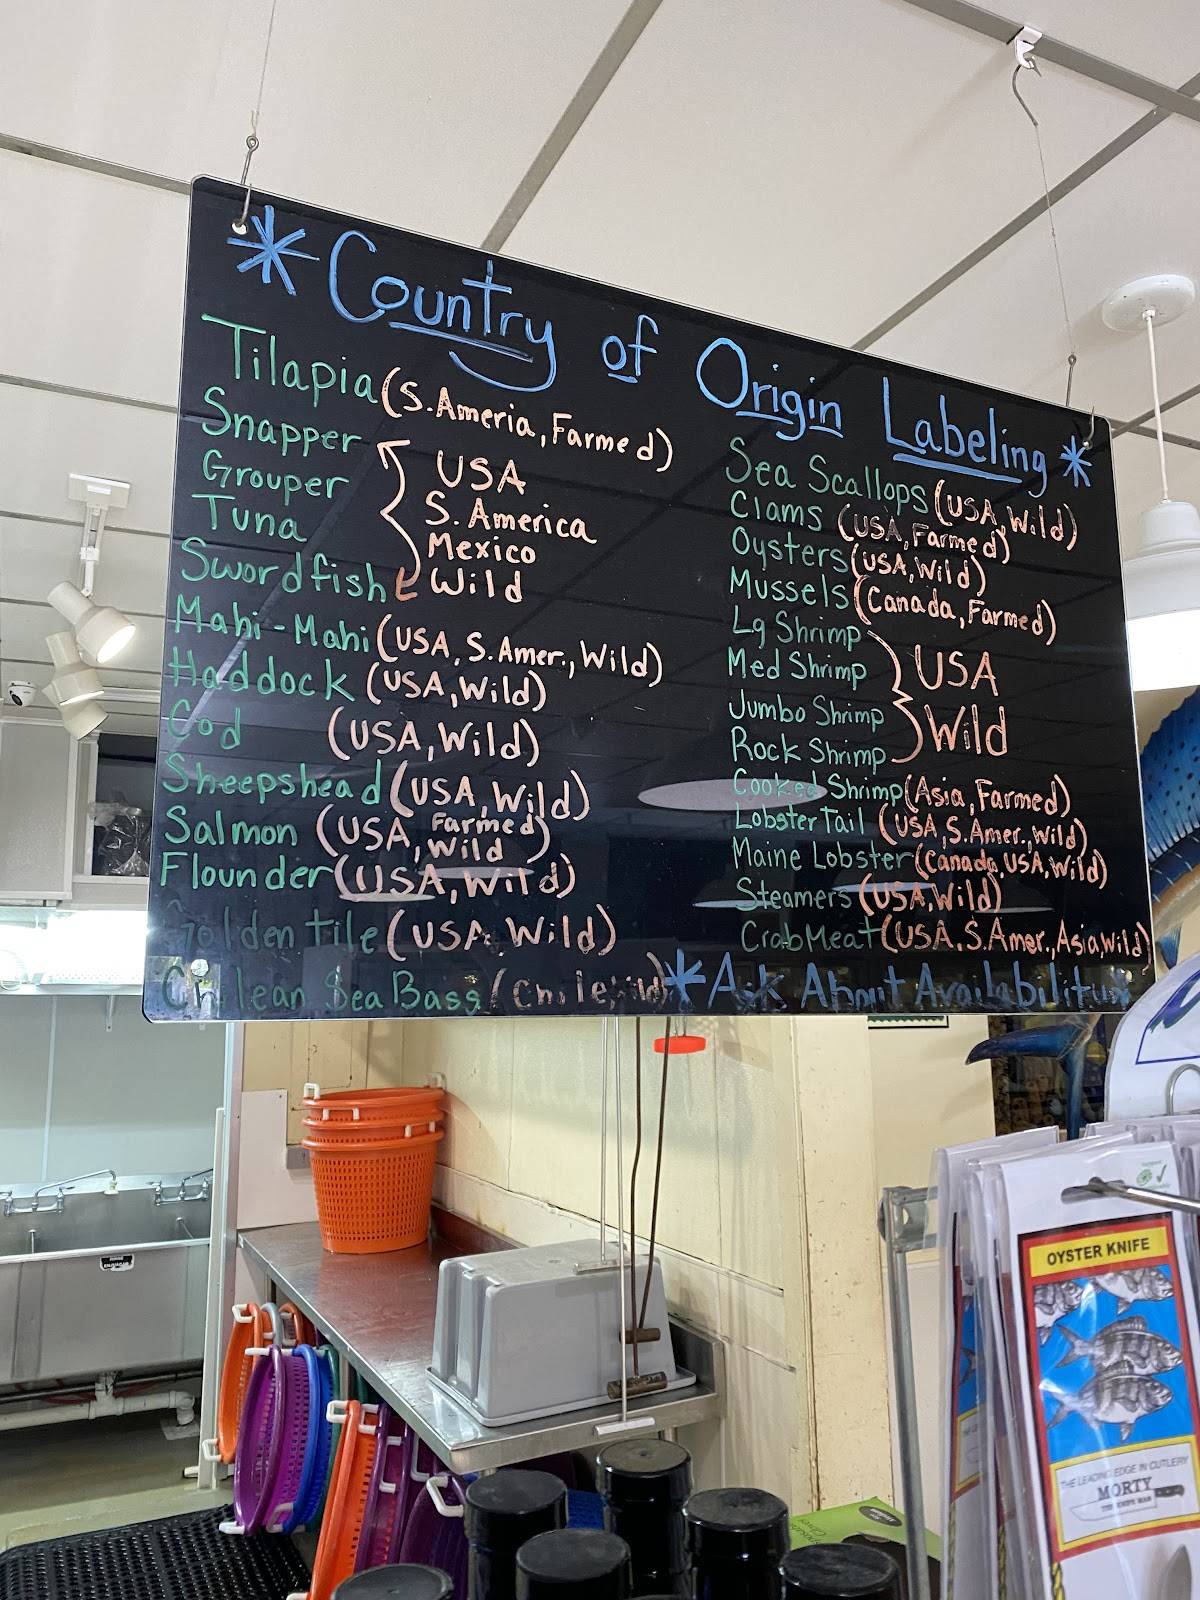 * Country of Origin Labeling *
Tilapia (S. Ameria, Farmed)
Snapper
Grouper
Tuna
Swordfish
USA
S. America
Mexico
Wild
Mahi-Mahi (USA, S. Amer., Wild)
Haddock (USA, Wild)
Cod (USA, Wild)
Sheepshead (USA, Wild)
Salmon (USA, Farmed, Wild)
Flounder (USA, Wild)
Golden tile (USA, Wild)
Chilean Sea Bass (Chile, Wild)
Sea Scallops (USA, Wild)
Clams (USA, Farmed)
Oysters (USA, Wild)
Mussels (Canada, Farmed)
Lg Shrimp
Med Shrimp
Jumbo Shrimp
Rock Shrimp
USA
Wild
Cooked Shrimp (Asia, Farmed)
Lobster Tail (USA, S. Amer., Wild)
Maine Lobster (Canada, USA, Wild)
Steamers (USA, Wild)
Crab Meat (USA, S. Amer., Asia, Wild)
* Ask About Availability *
OYSTER KNIFE
THE LEADING EDGE IN CUTLERY
MORTY
THE KNIFE MAN